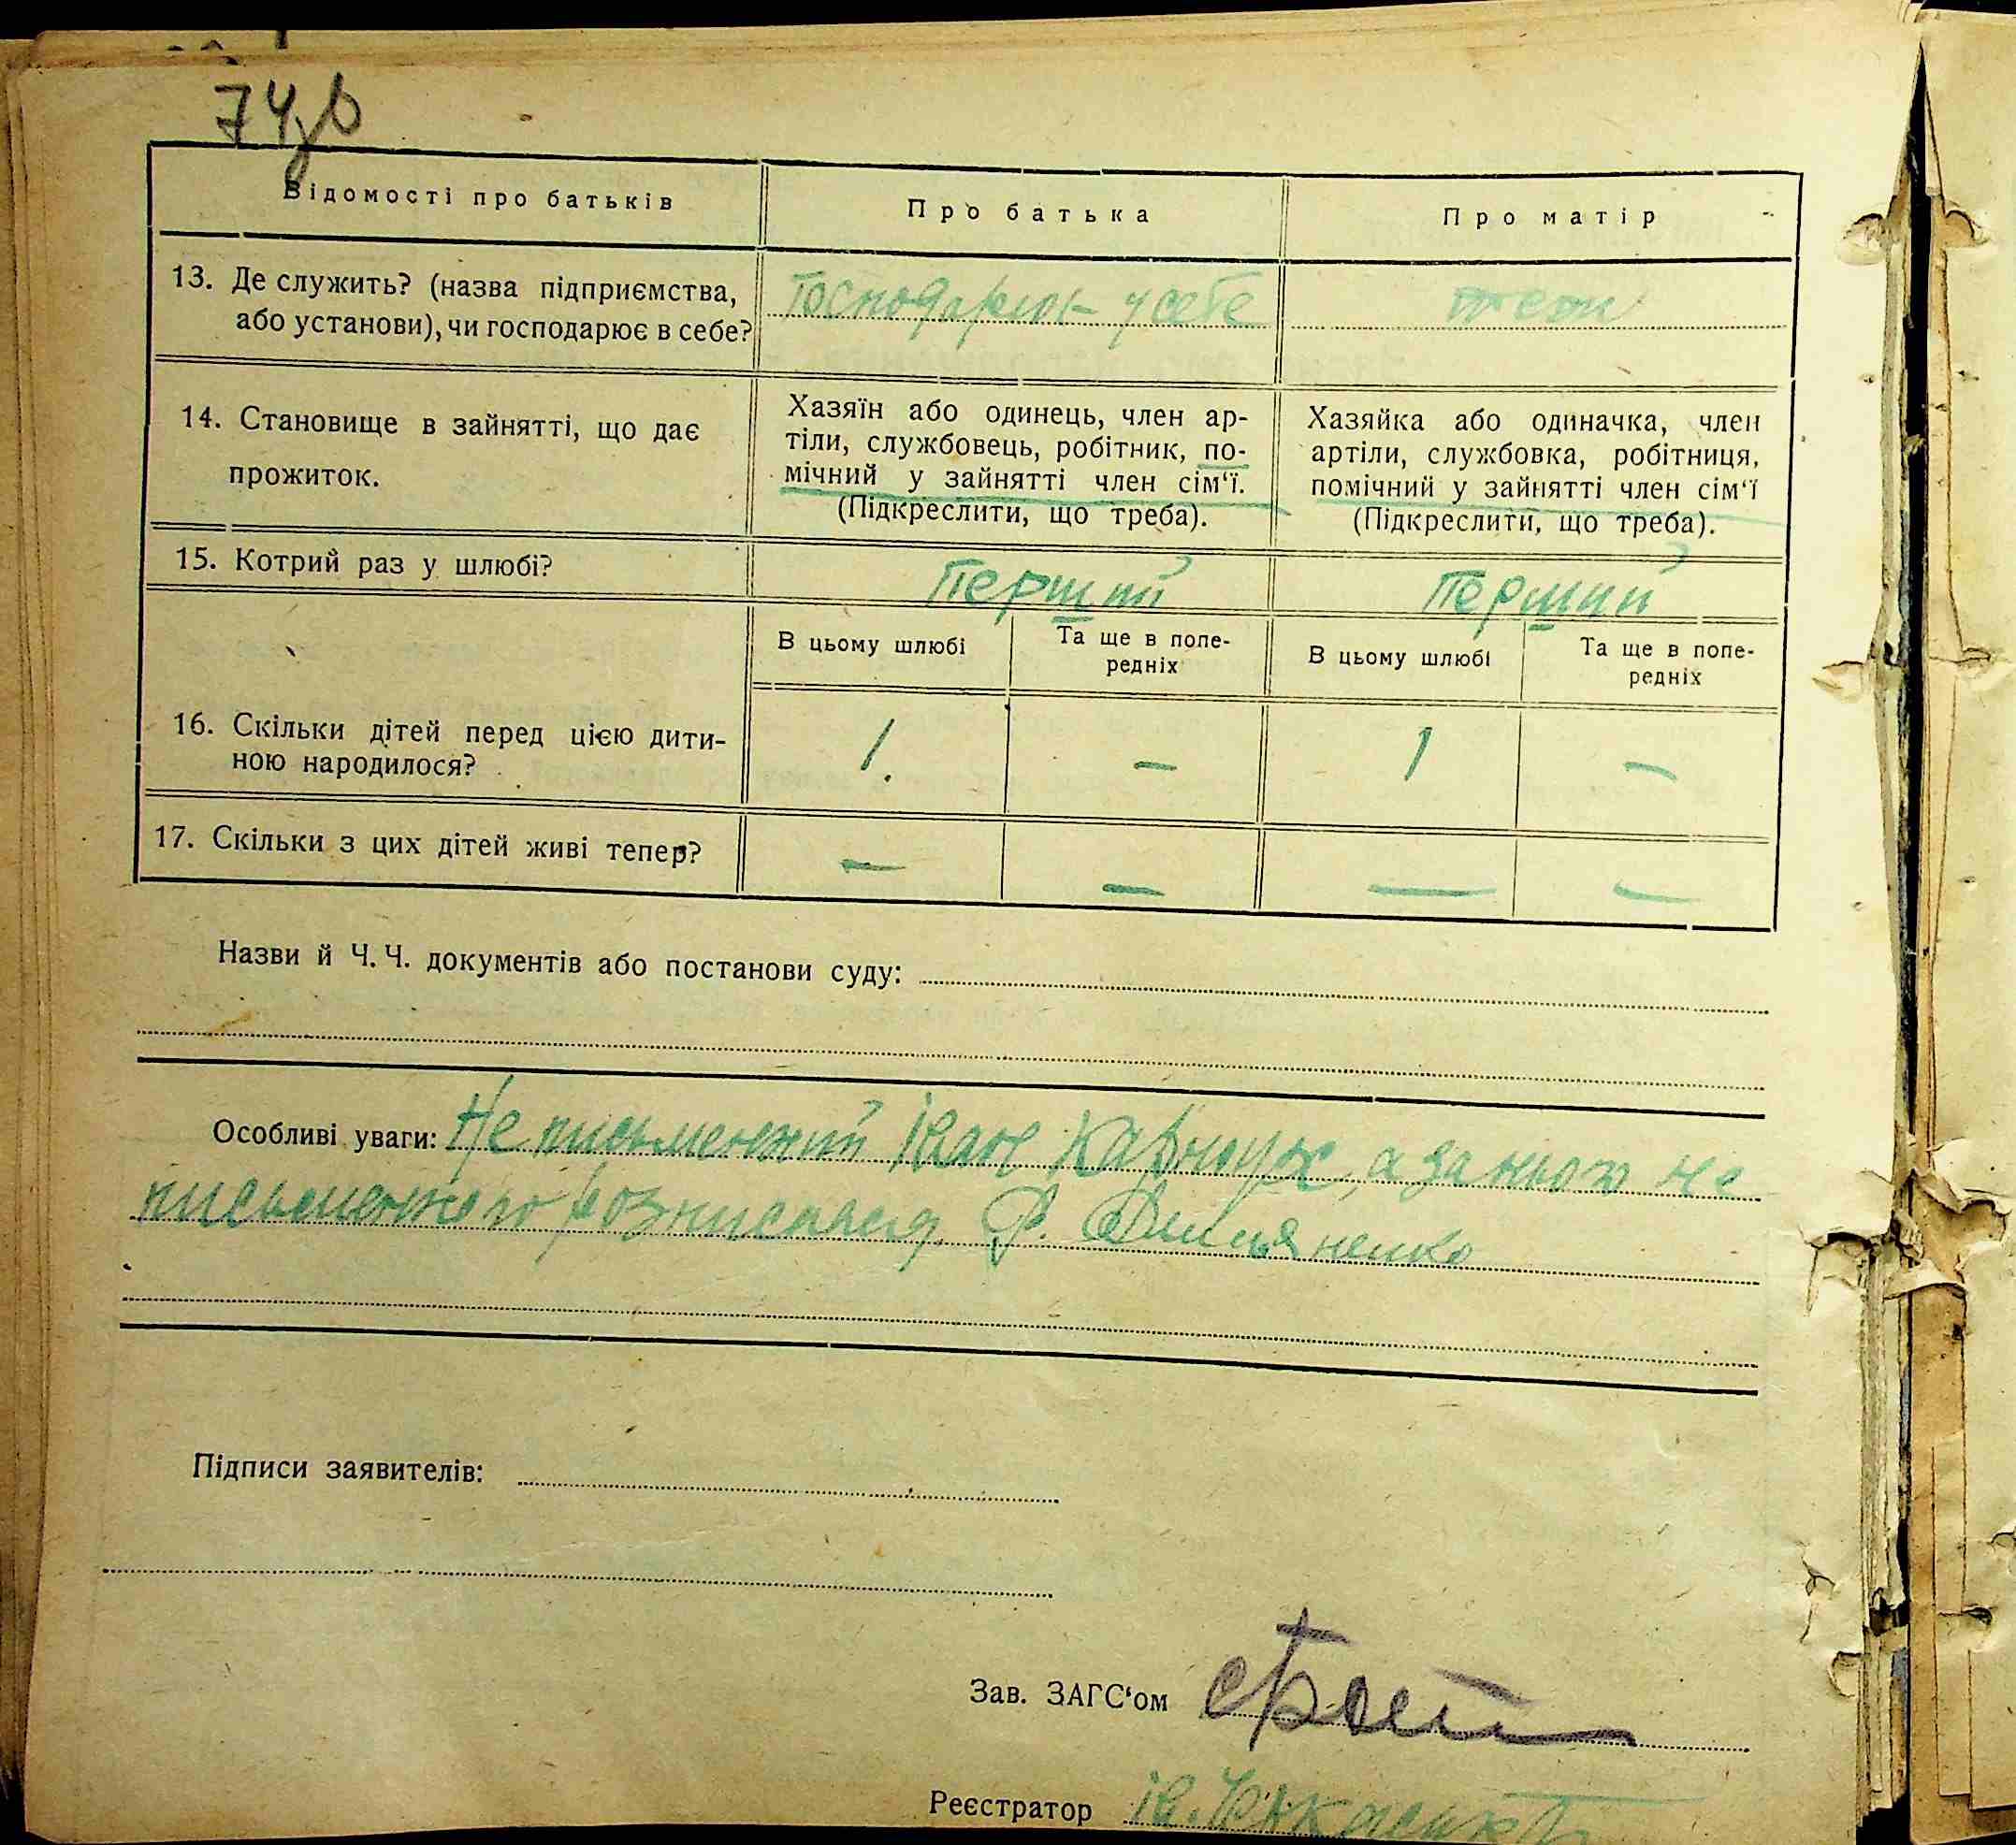 74зв
Відомості про батьків
Про батька
Про матір
13. Де служить? (назва підприємства,
або установи), чи господарює в себе?
Господарює у себе
теж
14. Становище в зайнятті, що дає
прожиток.
Хазяїн або одинець, член ар-
тіли, службовець, робітник, по-
мічний у зайнятті член сім'ї.
(Підкреслити, що треба).
Хазяйка або одиначка, член
артіли, службовка, робітниця,
помічний у зайнятті член сім'ї
(Підкреслити, що треба).
15. Котрий раз у шлюбі?
Перший
Перший
В цьому шлюбі
Та ще в попе-
редніх
В цьому шлюбі
Та ще в попе-
редніх
16. Скільки дітей перед цією дити-
ною народилося?
1
—
1
—
17. Скільки з цих дітей живі тепер?
—
—
—
—
Назви й Ч. Ч. документів або постанови суду:
Особливі уваги: Не письменний Іван а за нього не
письменного росписався Ф.
Підписи заявителів:
Зав. ЗАГС'ом
Реєстратор Ів.